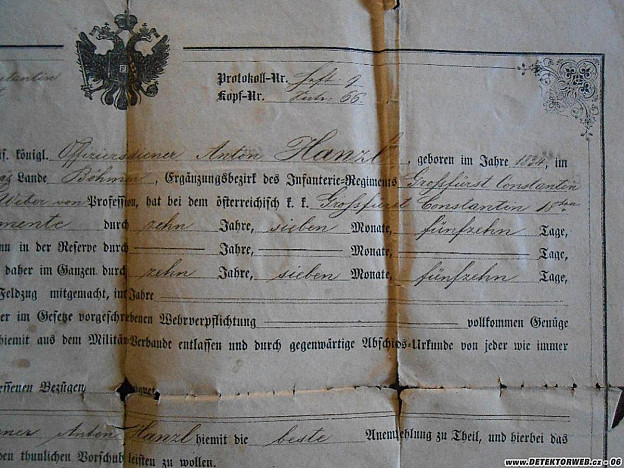 Protokoll-Nr. Heft: 9
Kopf-Nr. 66
königl. Offiziersdiener Anton Hanzl, geboren im Jahre 1834, im
Lande Böhmen, Ergänzungsbezirk des Infanterie-Regiments Großfürst Constantin
Weber von Profession, hat bei dem österreichisch k. k. Großfürst Constantin 18ten
durch zehn Jahre, sieben Monate, fünfzehn Tage,
in der Reserve durch Jahre, Monate, Tage,
daher im Ganzen durch zehn Jahre, sieben Monate, fünfzehn Tage,
Feldzug mitgemacht, im Jahre
er im Gesetze vorgeschriebenen Wehrverpflichtung vollkommen Genüge
hiemit aus dem Militär-Verbande entlassen und durch gegenwärtige Abschieds-Urkunde von jeder wie immer
Bezügen
Anton Hanzl hiemit die beste Anempfehlung zu Theil, und hierbei das
den thunlichen Vorschub leisten zu wollen.
www.DETEKTORWEB.cz - 06